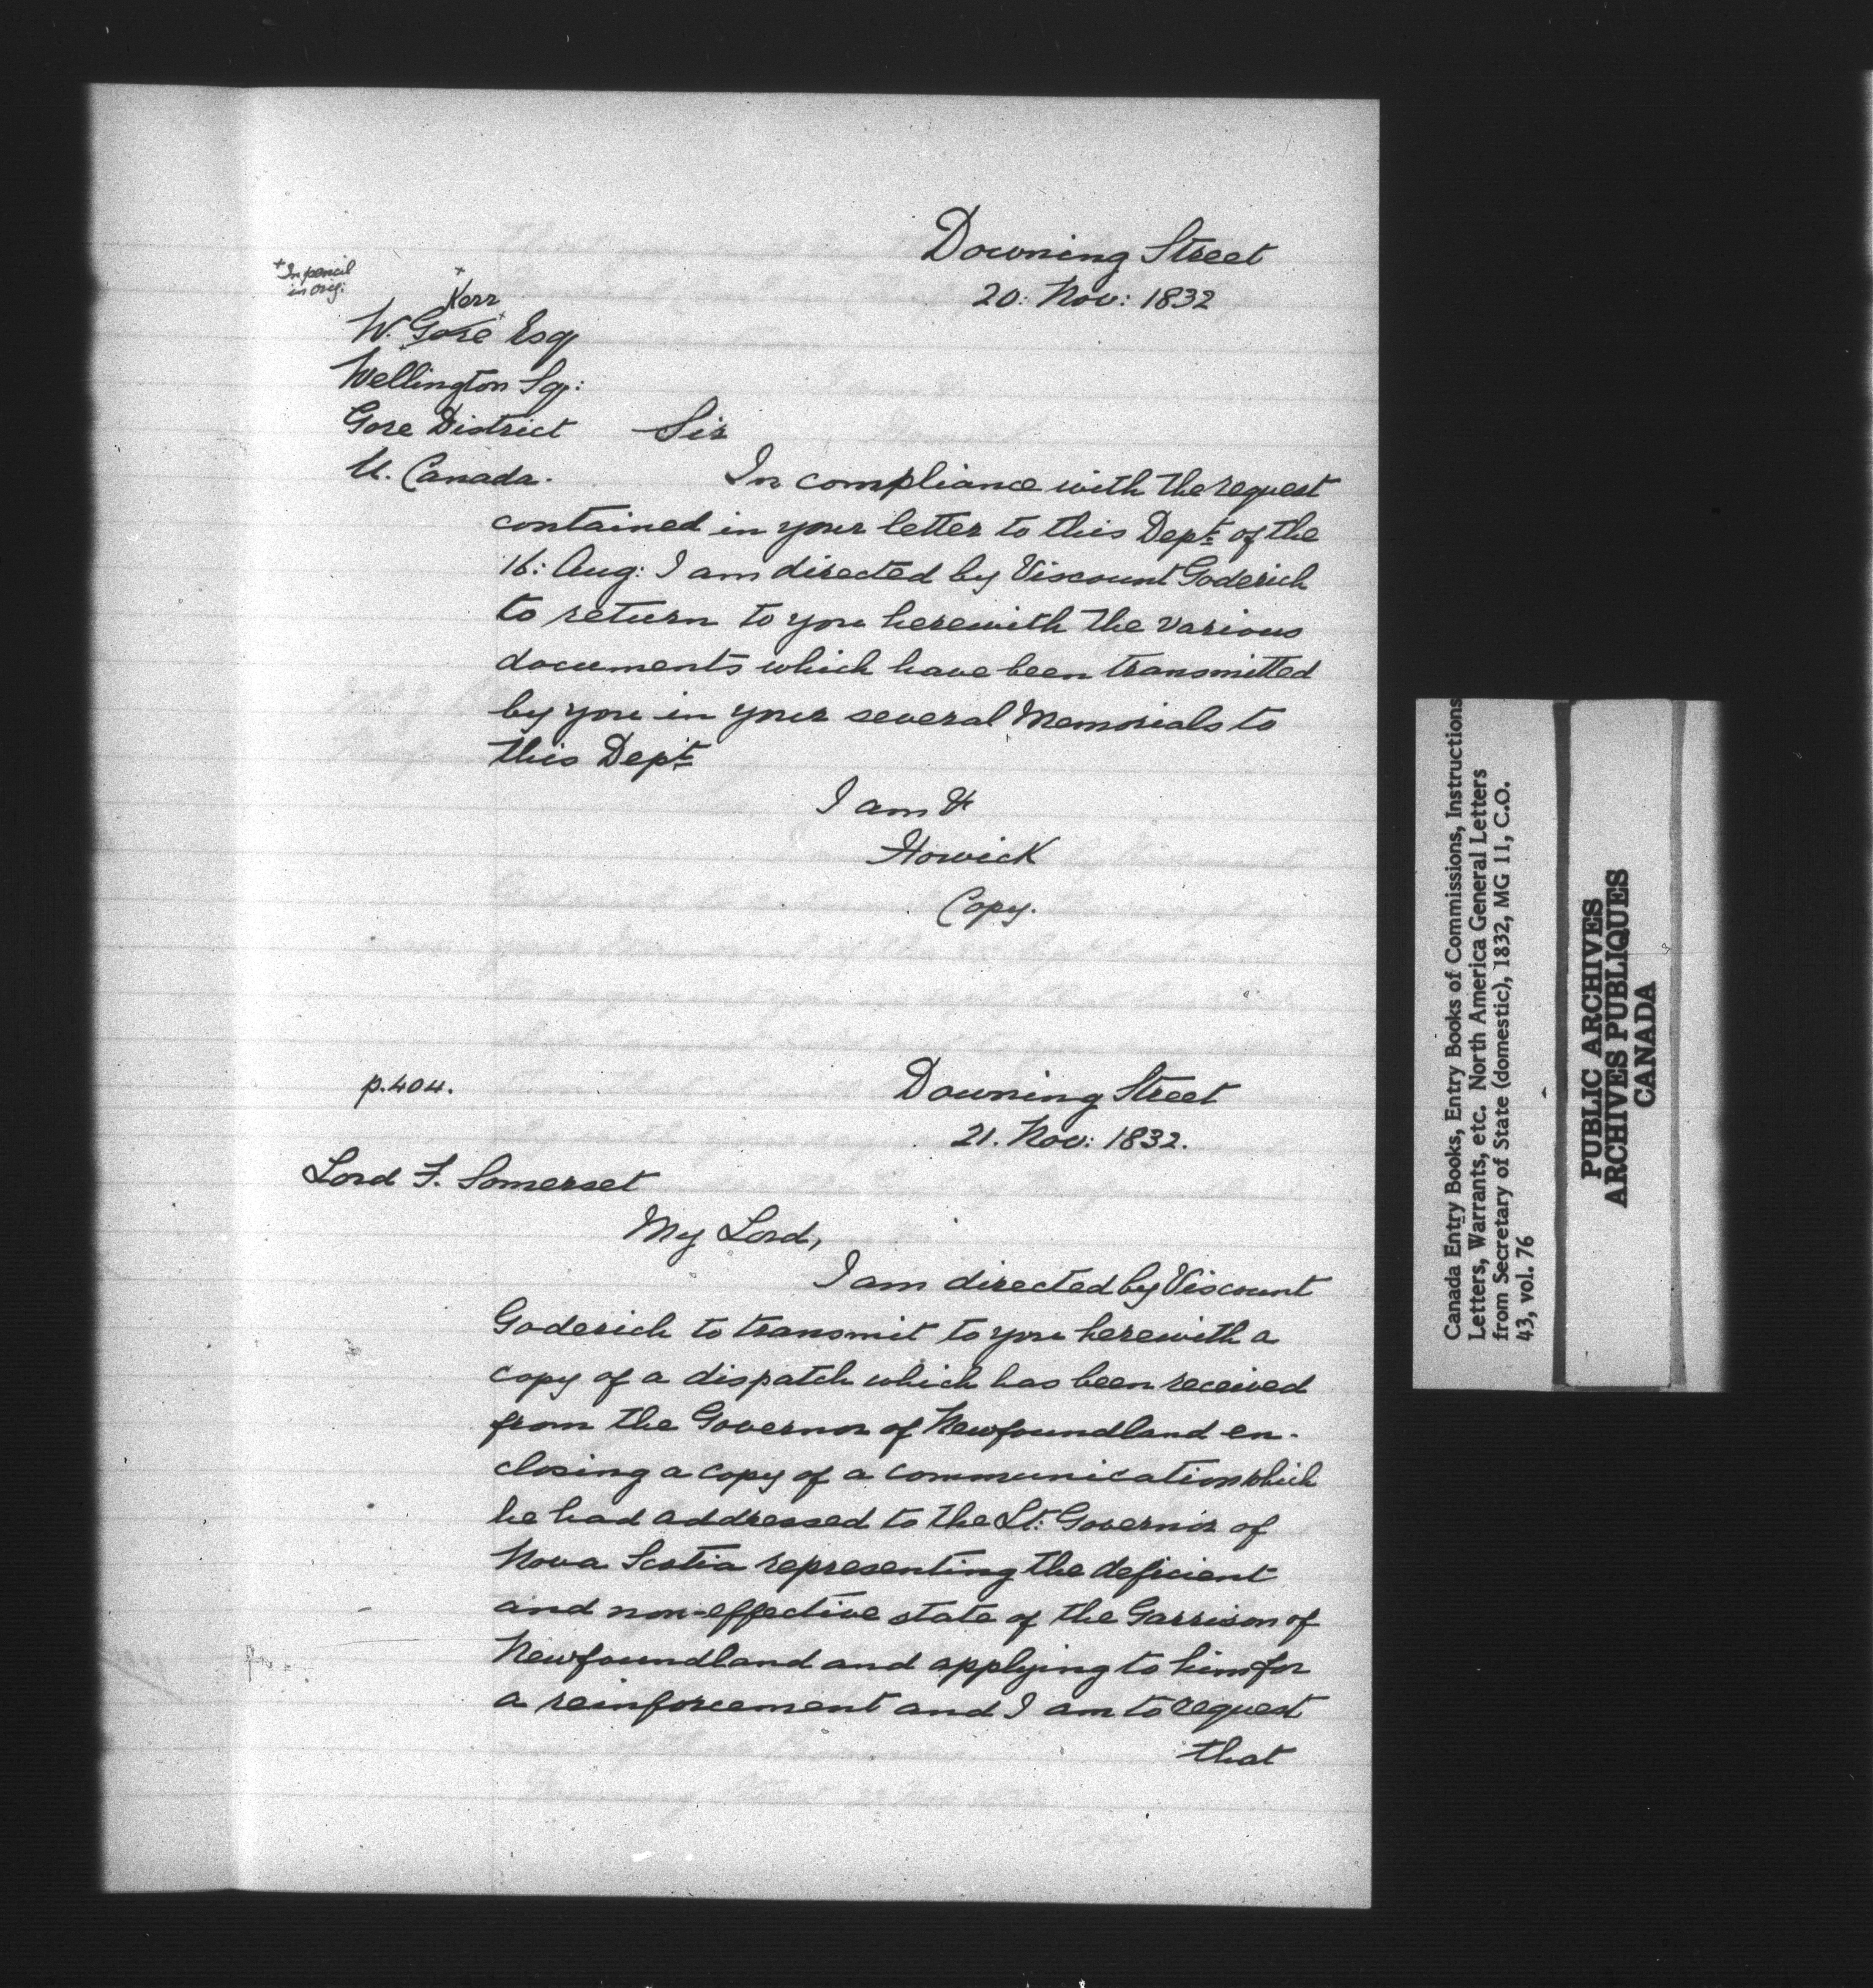 Downing Street
20: Nov: 1832
+In pencil
in orig:
+
Kerr
W. Gore Esq
Wellington Sq:
Gore District
U. Canada.
Sir
In compliance with the request
contained in your letter to this Dept. of the
16: Aug: I am directed by Viscount Goderich
to return to you herewith the various
documents which have been transmitted
by you in your several Memorials to
this Dept.
I am &
Howick
Copy.
p.404.
Downing Street
21. Nov: 1832.
Lord F. Somerset
My Lord,
I am directed by Viscount
Goderich to transmit to you herewith a
copy of a dispatch which has been received
from the Governor of Newfoundland en-
closing a copy of a communication which
he had addressed to the Lt: Governor of
Nova Scotia representing the deficient
and non-effective state of the Garrison of
Newfoundland and applying to him for
a reinforcement and I am to request
that
Canada Entry Books, Entry Books of Commissions, Instructions
Letters, Warrants, etc. North America General Letters
from Secretary of State (domestic), 1832, MG 11, C.O.
43, vol. 76
PUBLIC ARCHIVES
ARCHIVES PUBLIQUES
CANADA